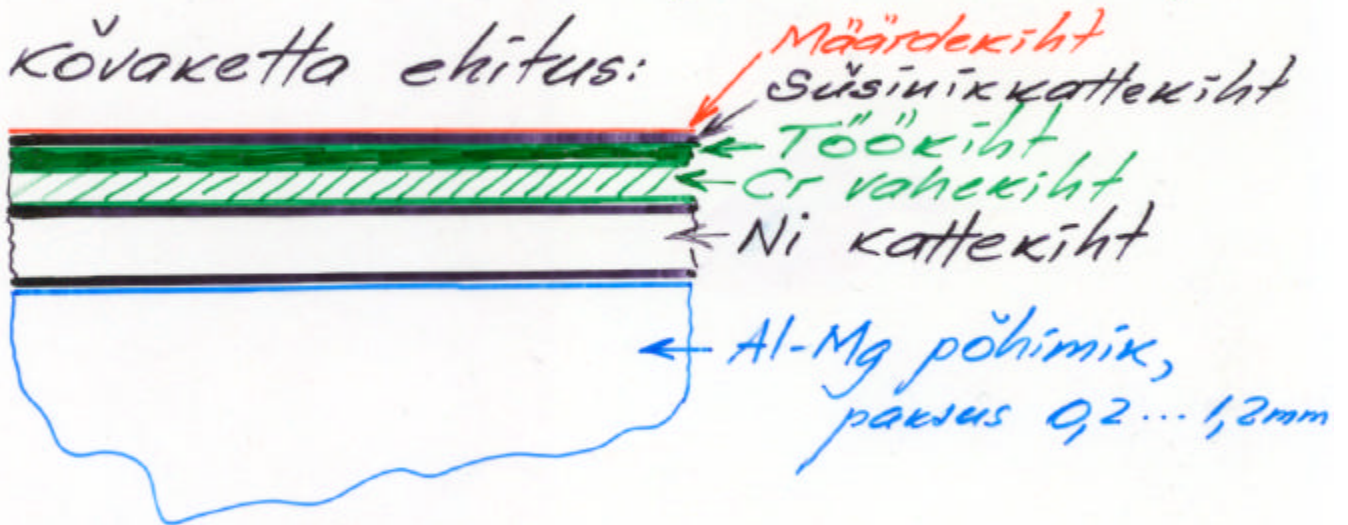 Kõvaketta ehitus:
Määrdekiht
Süsinikkattekiht
Töökiht
Cr vahekiht
Ni kattekiht
Al-Mg põhimik,
paksus 0,2... 1,2mm